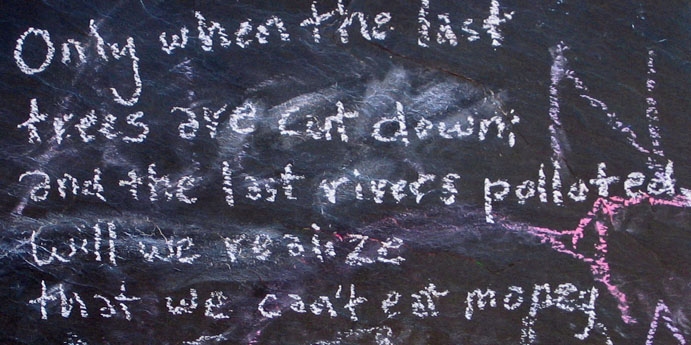 Only when the last
trees are cut down,
and the last rivers polluted,
will we realize
that we can't eat money